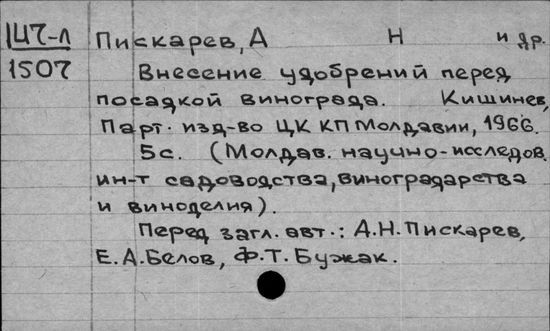 Ш47-л Пискарев, А Н и др.
1507 Внесение удобрений перед
посадкой винограда. Кишинев,
Парт. изд-во ЦК КП Молдавии, 1966.
5с. (Молдав. научно-исследов.
ин-т садоводства, виноградарства
и виноделия).
Перед загл. авт.: А.Н.Пискарев,
Е.А.Белов, Ф.Т.Бужак.